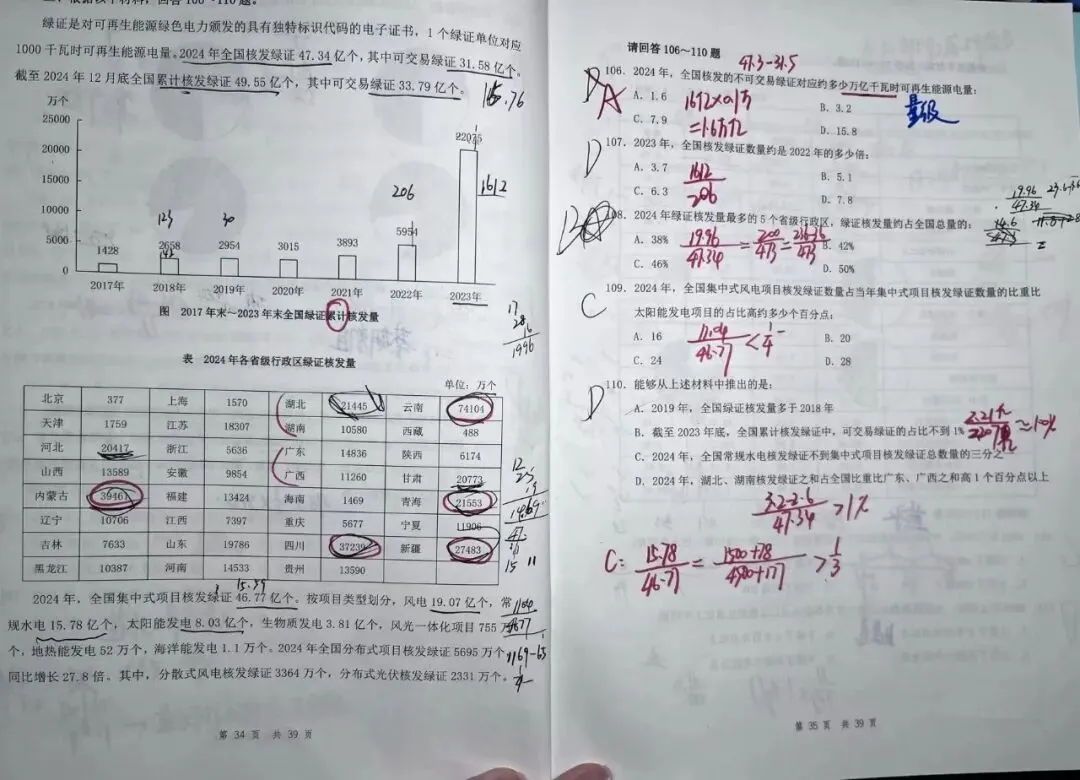 绿证是对可再生能源绿色电力颁发的具有独特标识代码的电子证书，1 个绿证单位对应
1000 千瓦时可再生能源电量。2024 年全国核发绿证 47.34 亿个，其中可交易绿证 31.58 亿个。
截至 2024 年 12 月底全国累计核发绿证 49.55 亿个，其中可交易绿证 33.79 亿个。
15.76
万个
25000
20000
15000
10000
5000
0
1428
2658
2954
3015
3893
5954
22075
123
30
206
1612
2017年 2018年 2019年 2020年 2021年 2022年 2023年
图 2017 年末～2023 年末全国绿证累计核发量
表 2024 年各省级行政区绿证核发量
单位：万个
北京 377 上海 1570 湖北 21445 云南 74104
天津 1759 江苏 18307 湖南 10580 西藏 488
河北 20417 浙江 5636 广东 14836 陕西 6174
山西 13589 安徽 9854 广西 11260 甘肃 20773
内蒙古 39461 福建 13424 海南 1469 青海 21553
辽宁 10706 江西 7397 重庆 5677 宁夏 11906
吉林 7633 山东 19786 四川 37239 新疆 27483
黑龙江 10387 河南 14533 贵州 13590
2024 年，全国集中式项目核发绿证 46.77 亿个。按项目类型划分，风电 19.07 亿个，常
规水电 15.78 亿个，太阳能发电 8.03 亿个，生物质发电 3.81 亿个，风光一体化项目 755 万
个，地热能发电 52 万个，海洋能发电 1.1 万个。2024 年全国分布式项目核发绿证 5695 万个，
同比增长 27.8 倍。其中，分散式风电核发绿证 3364 万个，分布式光伏核发绿证 2331 万个。
第 34 页 共 39 页
请回答 106～110 题
47.3-31.5
D
A
106. 2024 年，全国核发的不可交易绿证对应约多少万亿千瓦时可再生能源电量：
A. 1.6
B. 3.2
C. 7.9
D. 15.8
量级
D
107. 2023 年，全国核发绿证数量约是 2022 年的多少倍：
A. 3.7
B. 5.1
C. 6.3
D. 7.8
1612
206
108. 2024 年绿证核发量最多的 5 个省级行政区，绿证核发量约占全国总量的：
A. 38%
B. 42%
C. 46%
D. 50%
19.96
47.34
C
109. 2024 年，全国集中式风电项目核发绿证数量占当年集中式项目核发绿证数量的比重比
太阳能发电项目的占比高约多少个百分点：
A. 16
B. 20
C. 24
D. 28
11.04
46.77
< 1/4
D
110. 能够从上述材料中推出的是：
A. 2019 年，全国绿证核发量多于 2018 年
B. 截至 2023 年底，全国累计核发绿证中，可交易绿证的占比不到 1%
C. 2024 年，全国常规水电核发绿证不到集中式项目核发绿证总数量的三分之一
D. 2024 年，湖北、湖南核发绿证之和占全国比重比广东、广西之和高 1 个百分点以上
3.2-2.6
47.34
>1%
C: 15.78/46.77 = 1500+78/4500+177 > 1/3
第 35 页 共 39 页